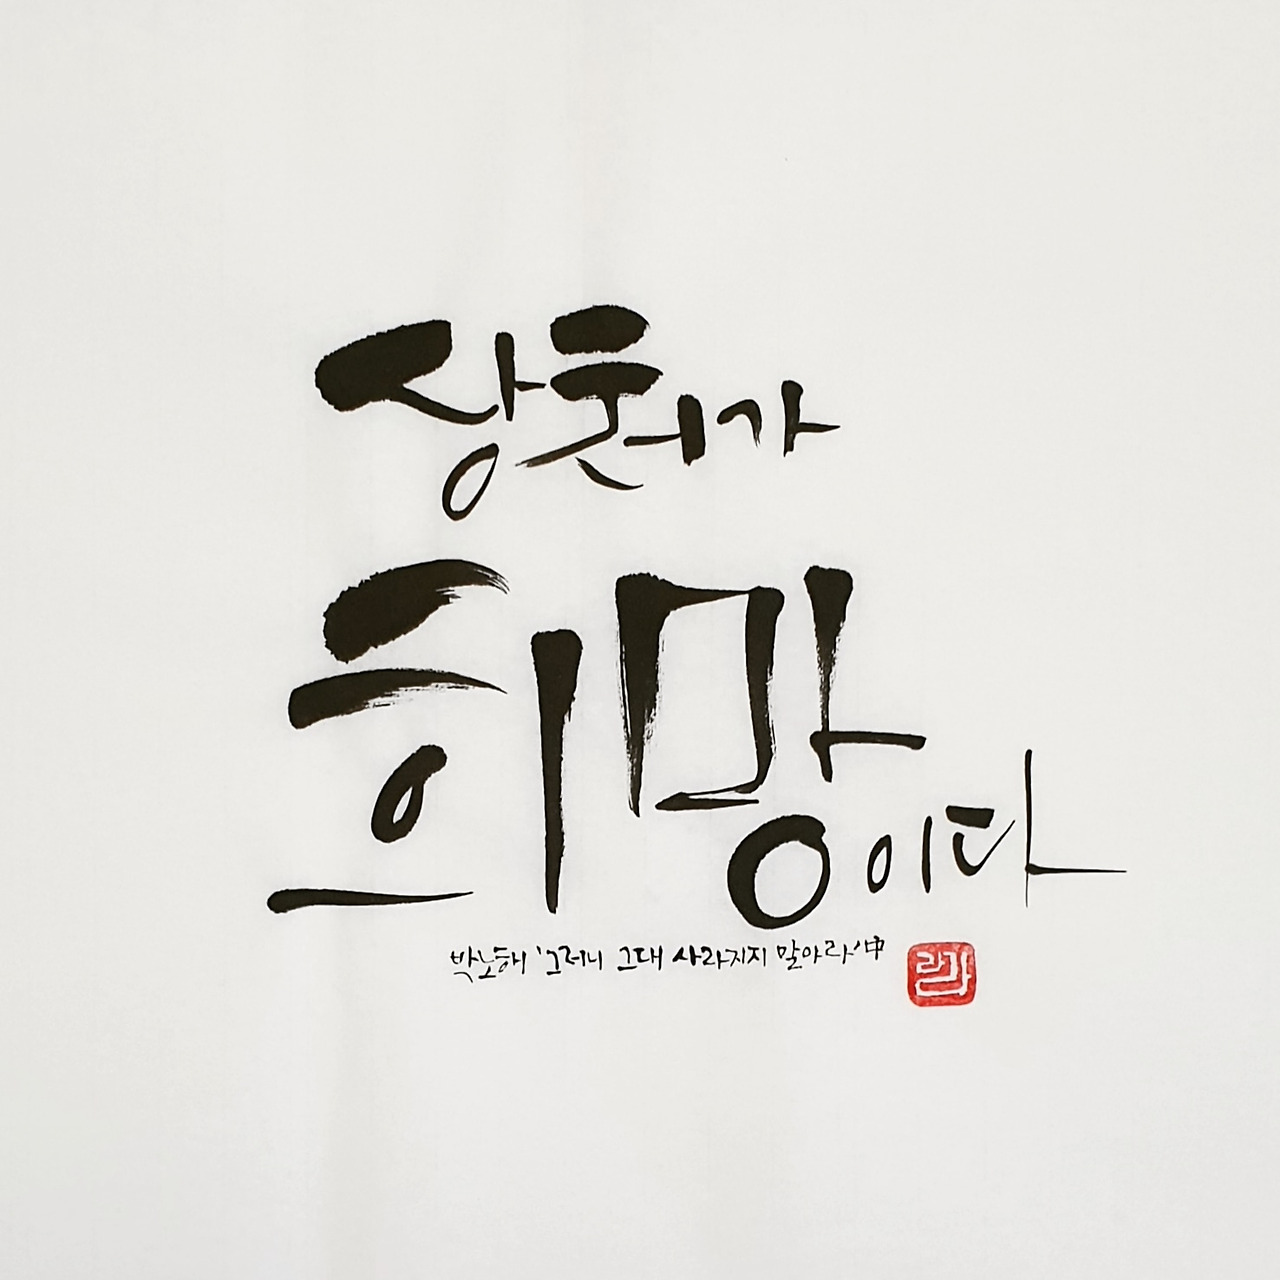 상처가
희망이다
박노해 '그러니 그대 사라지지 말아라' 中